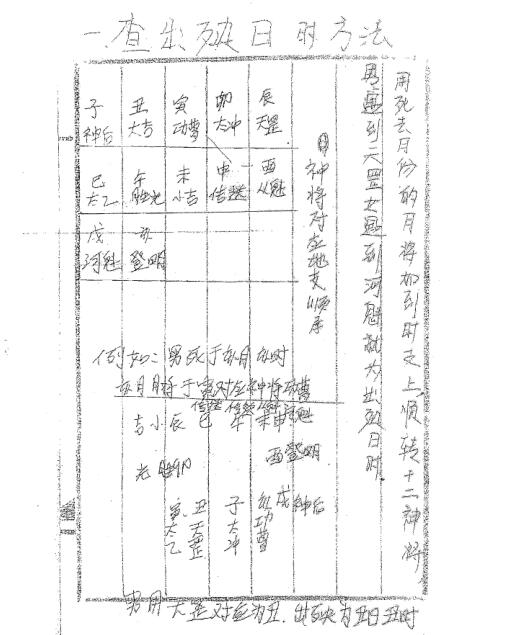 一.查出殃日时方法
用死去月份的月将加到时支上顺转十二神将
男逢到天罡女逢到河魁就为出殃日时
神将对应地支顺序
子 丑 寅 卯 辰
神后 大吉 功曹 太冲 天罡
巳 午 未 申 酉
太乙 胜光 小吉 传送 从魁
戌 亥
河魁 登明
例如:男死于亥月亥时
亥月月将于寅对应神将功曹
吉小 辰 巳 午 未 申 河魁
传送 从魁
光胜 卯 酉登明
寅太乙 丑天罡 子太冲 亥功曹 戌神后
男用天罡对应为丑.出殃为丑日丑时